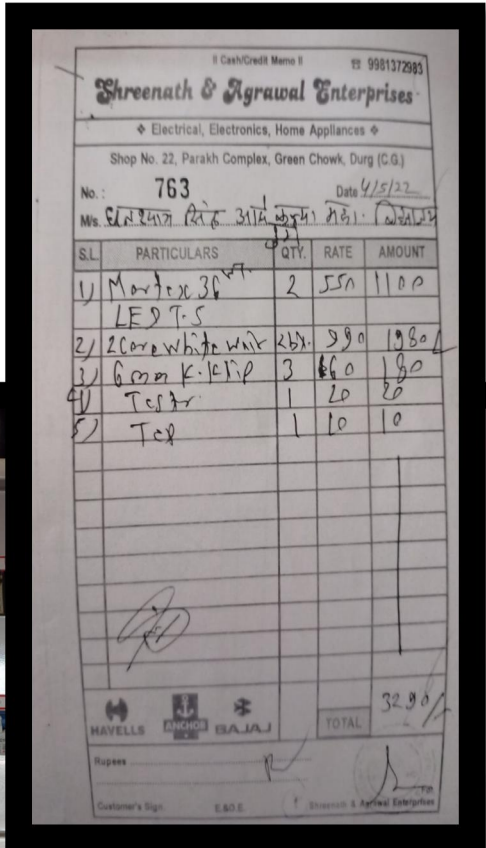 !! Cash/Credit Memo !!
☎ 9981372983
Shreenath & Agrawal Enterprises
❖ Electrical, Electronics, Home Appliances ❖
Shop No. 22, Parakh Complex, Green Chowk, Durg (C.G.)
No.: 763 Date 4/5/22
M/s. घनश्याम सिंह आर्य कन्या महा.
S.L. PARTICULARS QTY. RATE AMOUNT
1) 36 2 550 1100
LED T-5
2) 2 Core white 990 1980/
3) 6 mm K. Klip 3 60 180
4) Tester 1 20 20
5) Tep 1 10 10
HAVELLS ANCHOR BAJAJ TOTAL 3290/
Rupees
Customer's Sign. E.&O.E. Shreenath & Agrawal Enterprises